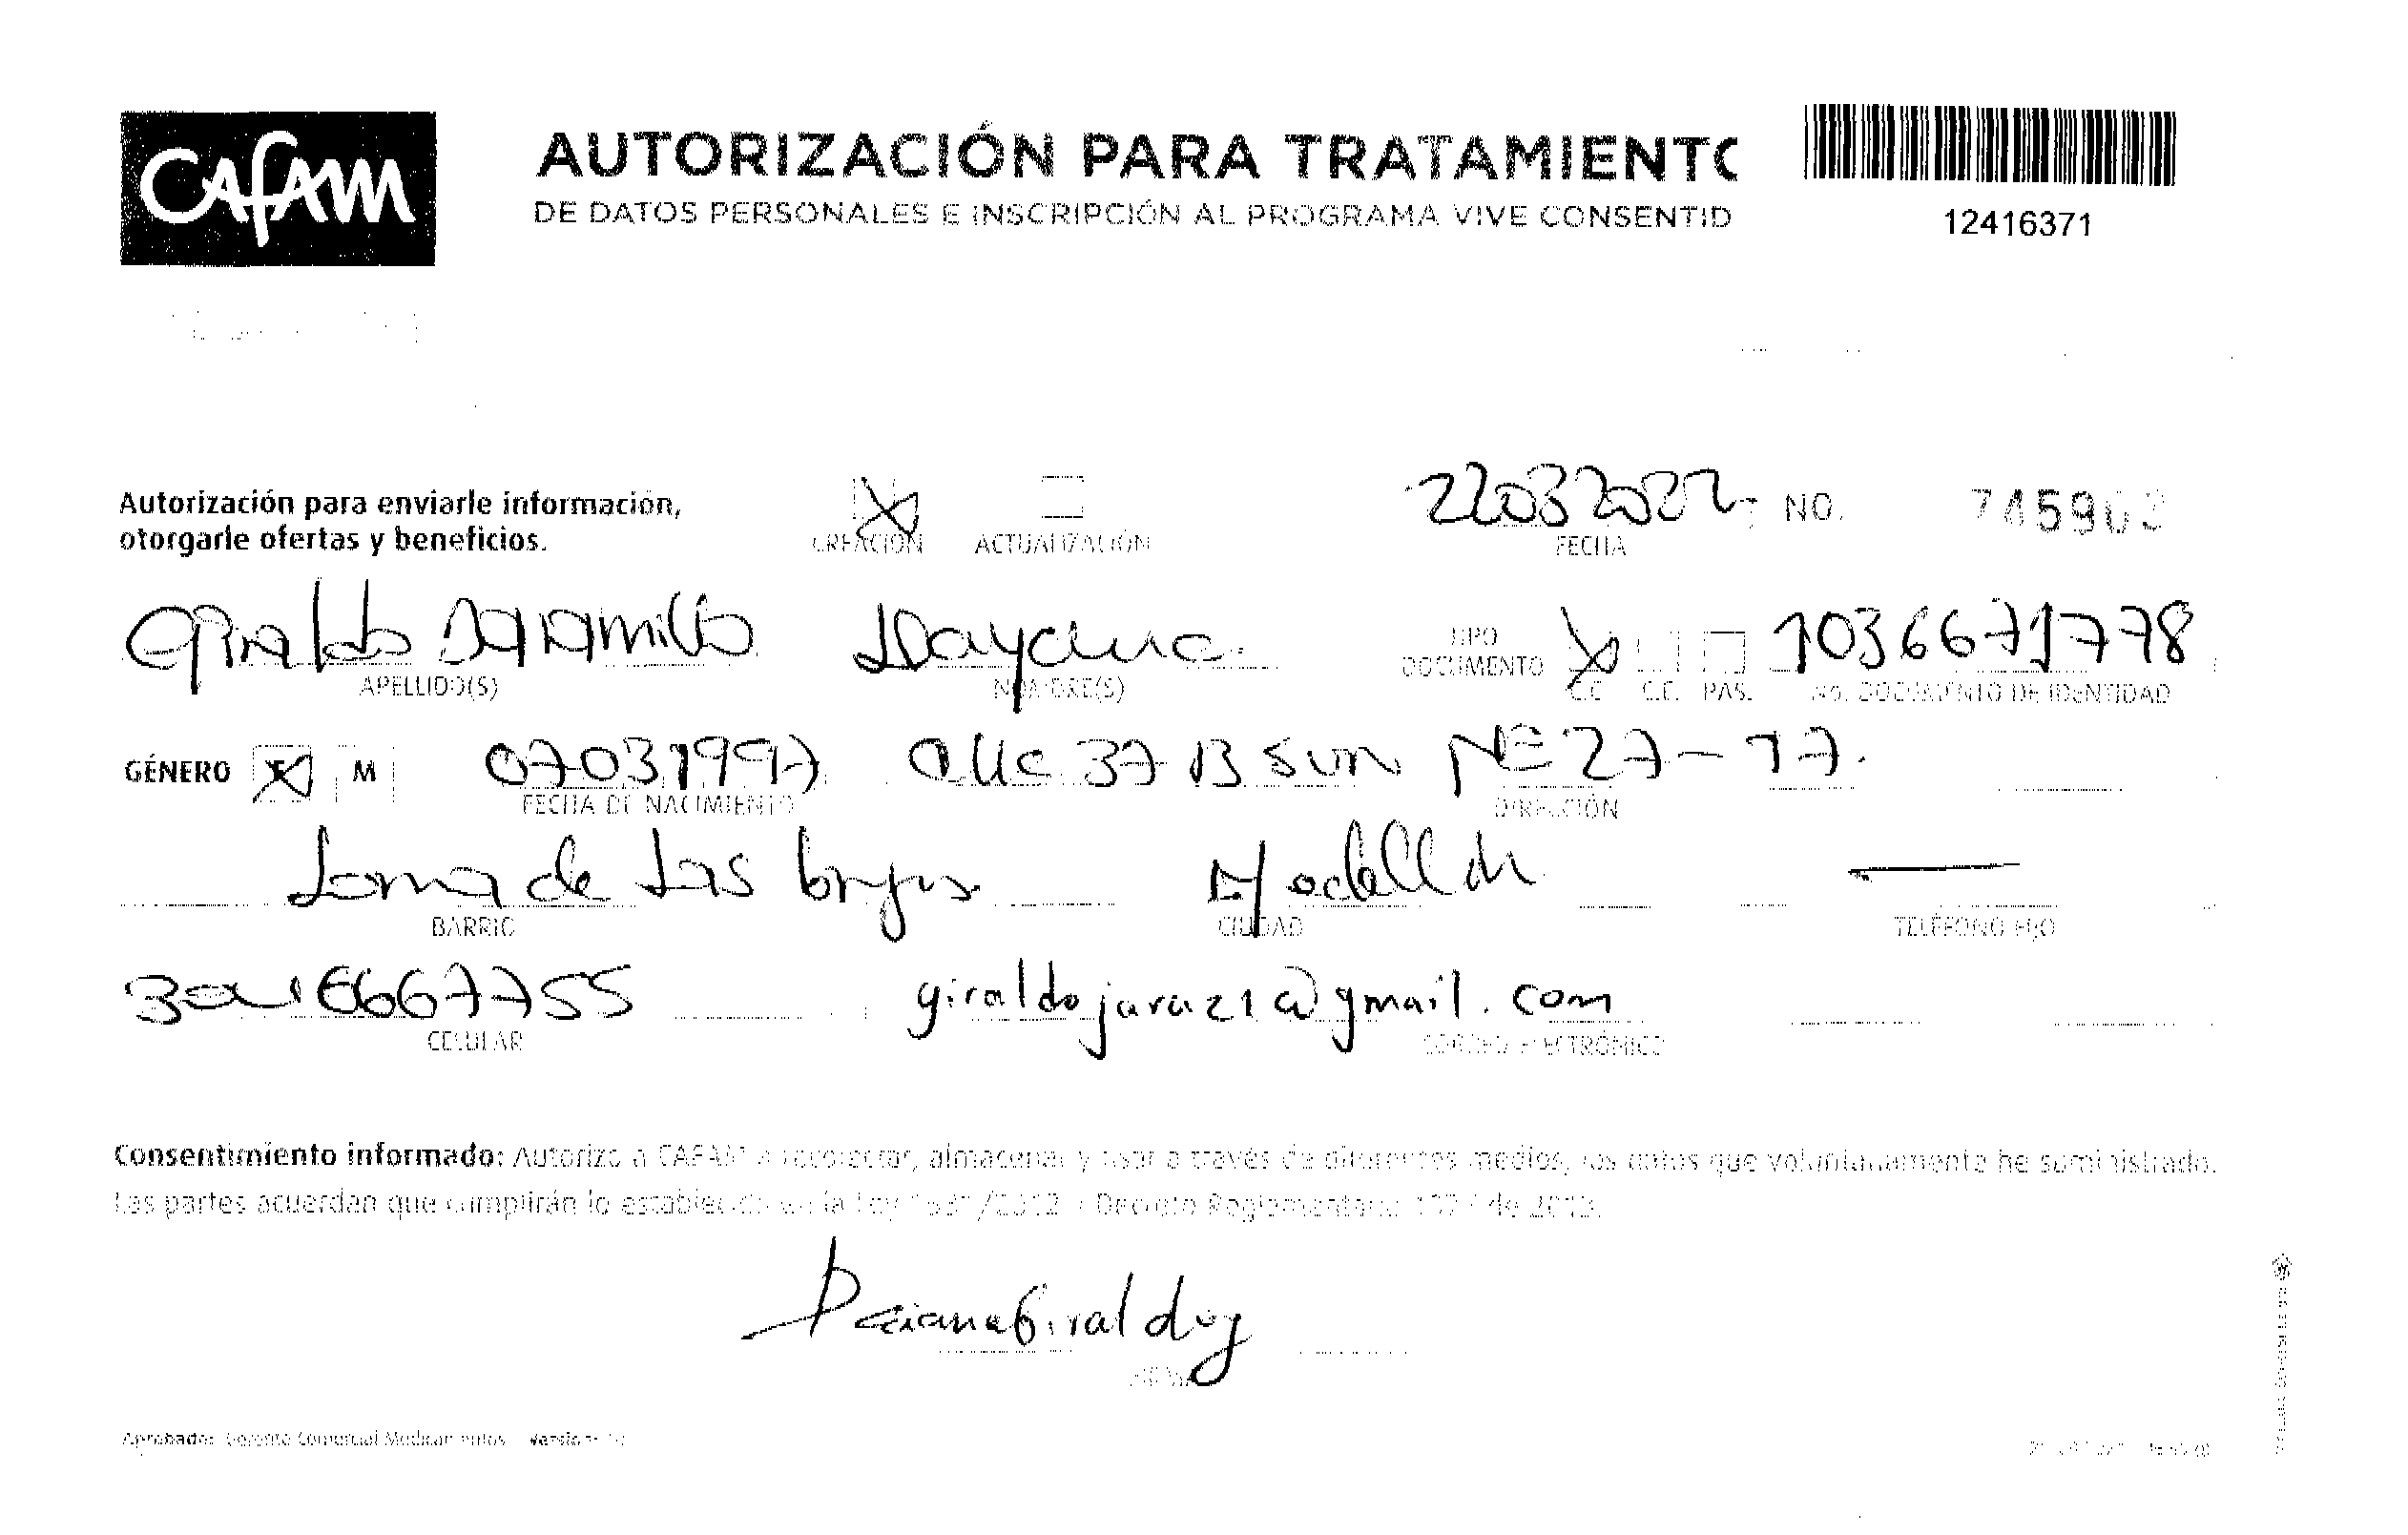 CAFAM
AUTORIZACIÓN PARA TRATAMIENTO
DE DATOS PERSONALES E INSCRIPCIÓN AL PROGRAMA VIVE CONSENTID
12416371
Autorización para enviarle información,
otorgarle ofertas y beneficios.
CREACIÓN ACTUALIZACIÓN
22032022 NO. 745903
FECHA
Giraldo Jaramillo Dayana TIPO DOCUMENTO 1036671778
APELLIDO(S) NOMBRE(S) C.C C.E. PAS. No. DOCUMENTO DE IDENTIDAD
GÉNERO F M 07031997 Calle 37 B Sur N= 27-17.
FECHA DE NACIMIENTO DIRECCIÓN
Loma de Las brujas Medellin
BARRIO CIUDAD TELÉFONO FIJO
6667755 giraldojara21@gmail.com
CELULAR CORREO ELECTRÓNICO
Consentimiento informado: Autorizo a CAFAM a recolectar, almacenar y usar a través de diferentes medios, los datos que voluntariamente he suministrado.
Las partes acuerdan que cumplirán lo establecido en la Ley /2012 Decreto Reglamentario de 2013.
Daiana Giraldo J
FIRMA
Aprobado: Gerente Comercial Medicamentos Versión: